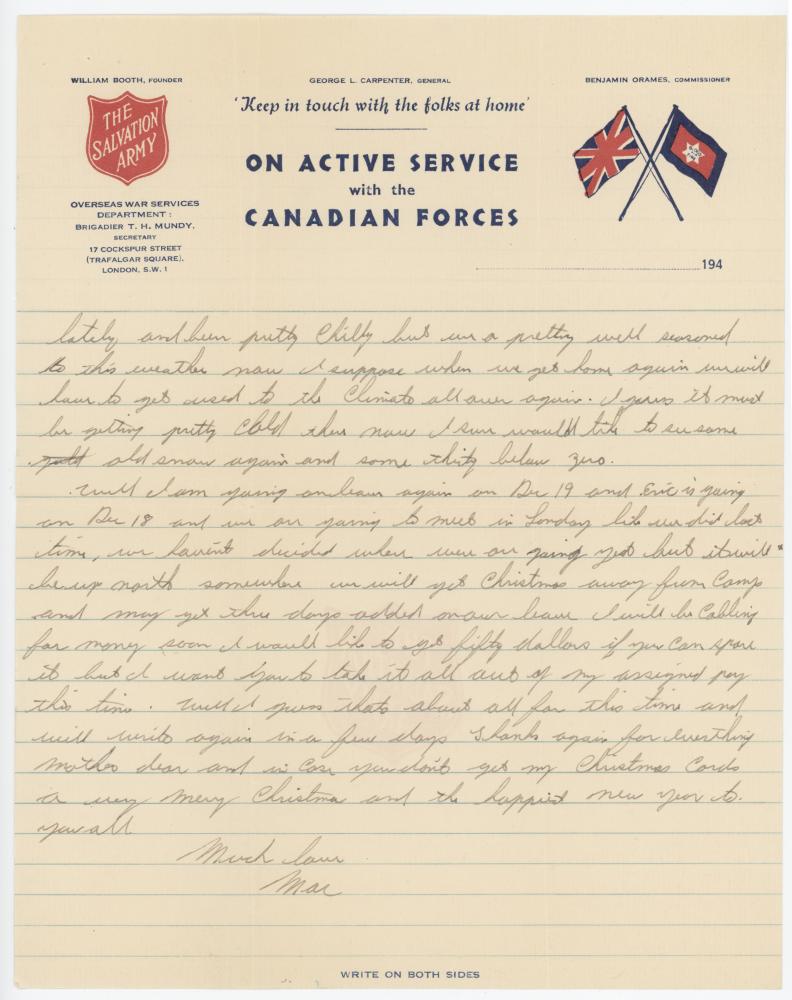 WILLIAM BOOTH, FOUNDER
GEORGE L. CARPENTER, GENERAL
BENJAMIN ORAMES, COMMISSIONER
THE
SALVATION
ARMY
'Keep in touch with the folks at home'
ON ACTIVE SERVICE
with the
CANADIAN FORCES
OVERSEAS WAR SERVICES
DEPARTMENT :
BRIGADIER T. H. MUNDY,
SECRETARY
17 COCKSPUR STREET
(TRAFALGAR SQUARE),
LONDON, S.W. 1
194
lately and been pretty Chilly but we a pretty well seasoned
to this weather now I suppose when we get home again we will
have to get used to the Climate all over again. I guess it must
be getting pretty Cold there now I sure would like to see some
old snow again and some thirty below zero.
Well I am going on leave again on Dec 19 and Eric is going
on Dec 18 and we are going to meet in London like we did last
time, we havent decided where were are going yet but it will
be up north somewhere we will get Christmas away from Camp
and may get three days added on our leave I will be Cabling
for money soon I would like to get fifty dollars if you can spare
it but I want you to take it all out of my assigned pay
this time. Well I guess thats about all for this time and
will write again in a few days Thanks again for everthing
mother dear and in Case you dont get my Christmas Cards
a very Merry Christmas and the happiest new year to
you all
Much love
Mac
WRITE ON BOTH SIDES